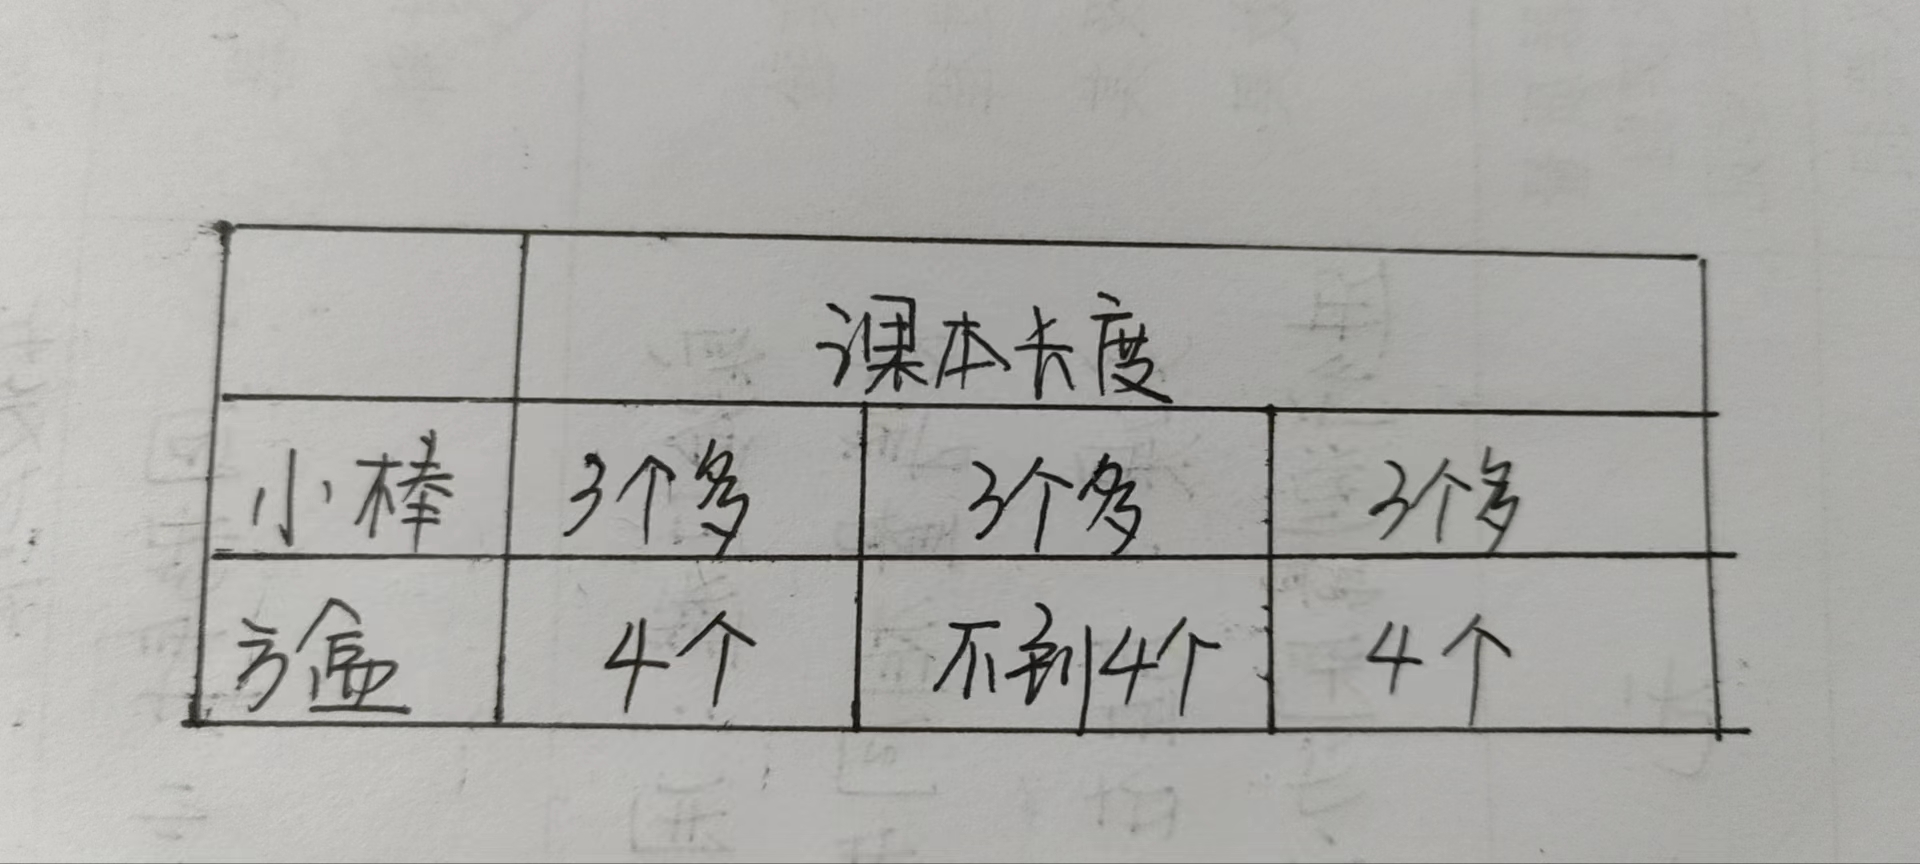 课本长度
小棒 3个多 3个多 3个多
方盒 4个 不到4个 4个